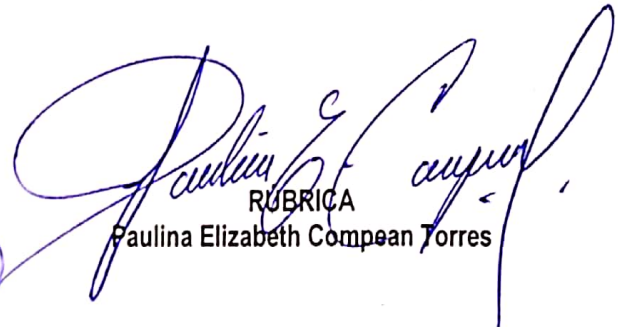 Paulina E. Compean
RUBRICA
Paulina Elizabeth Compean Torres